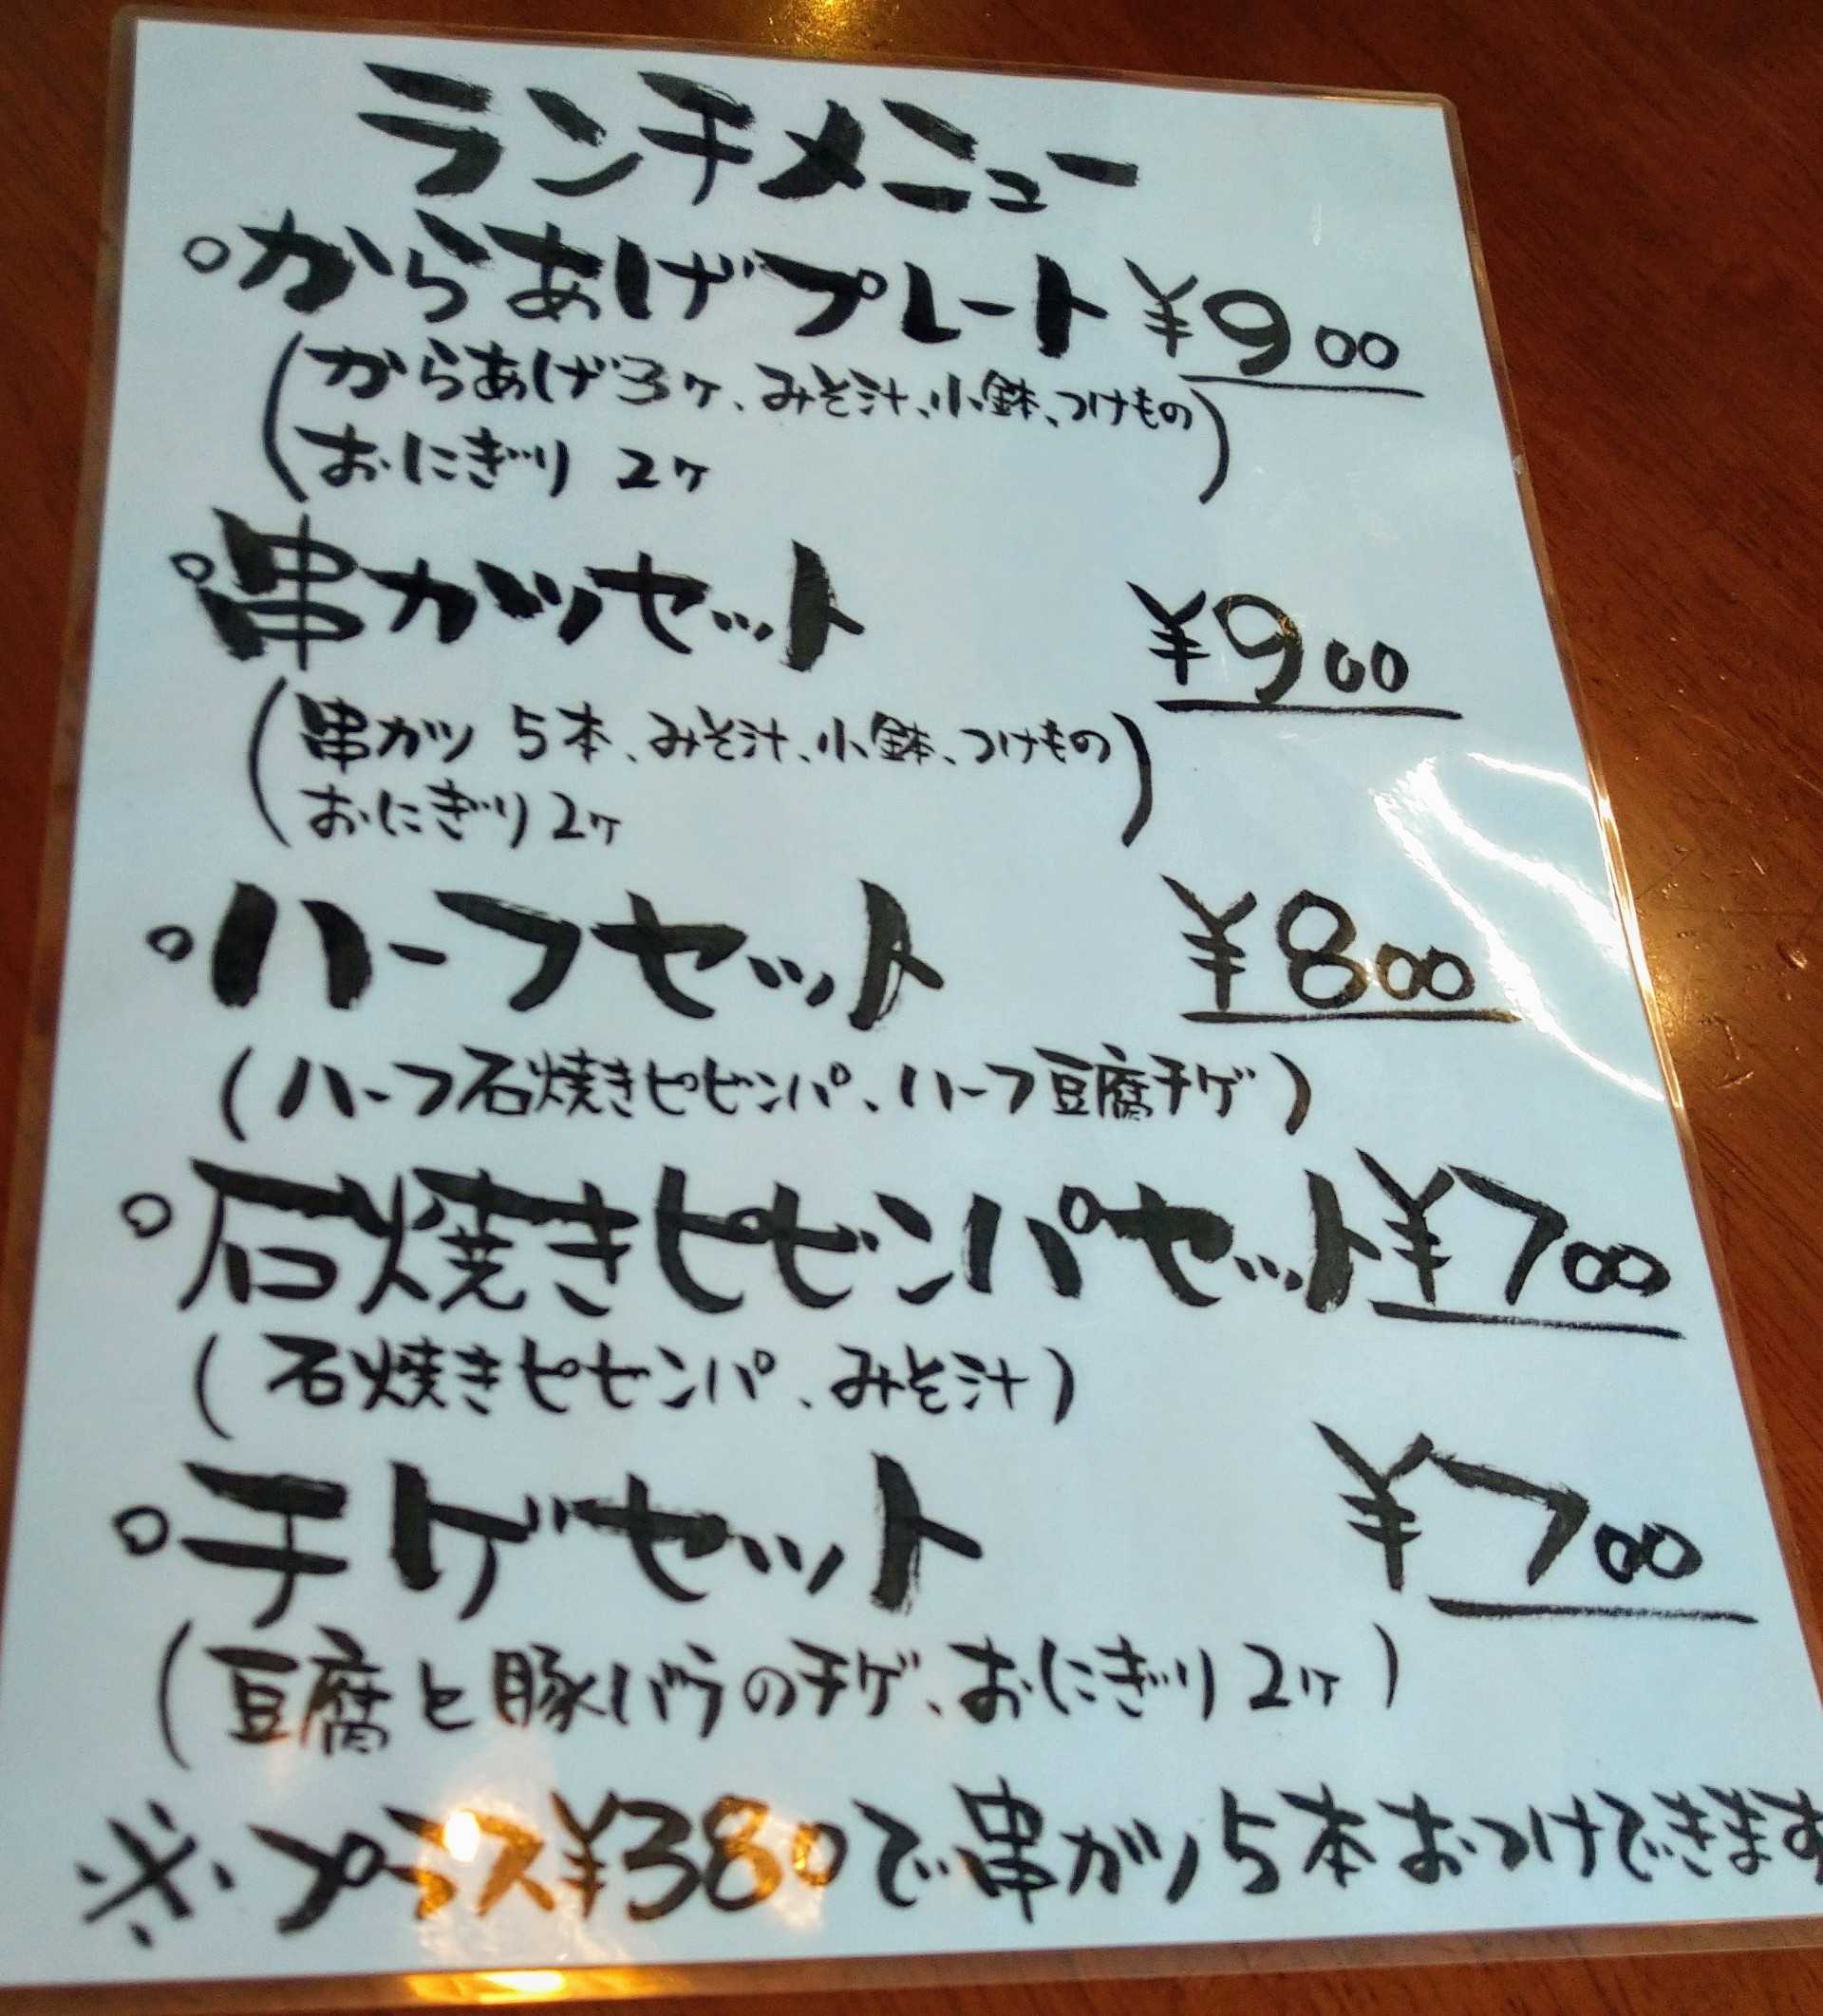 ランチメニュー
○からあげプレート ¥900
(からあげ3ヶ、みそ汁、小鉢、つけもの
おにぎり 2ヶ)
○串カツセット ¥900
(串カツ 5本、みそ汁、小鉢、つけもの
おにぎり2ヶ)
○ハーフセット ¥800
(ハーフ石焼きピビンパ、ハーフ豆腐チゲ)
○石焼きピビンパセット ¥700
(石焼きピビンパ、みそ汁)
○チゲセット ¥700
(豆腐と豚バラのチゲ、おにぎり2ヶ)
※プラス¥380で串カツ5本おつけできます